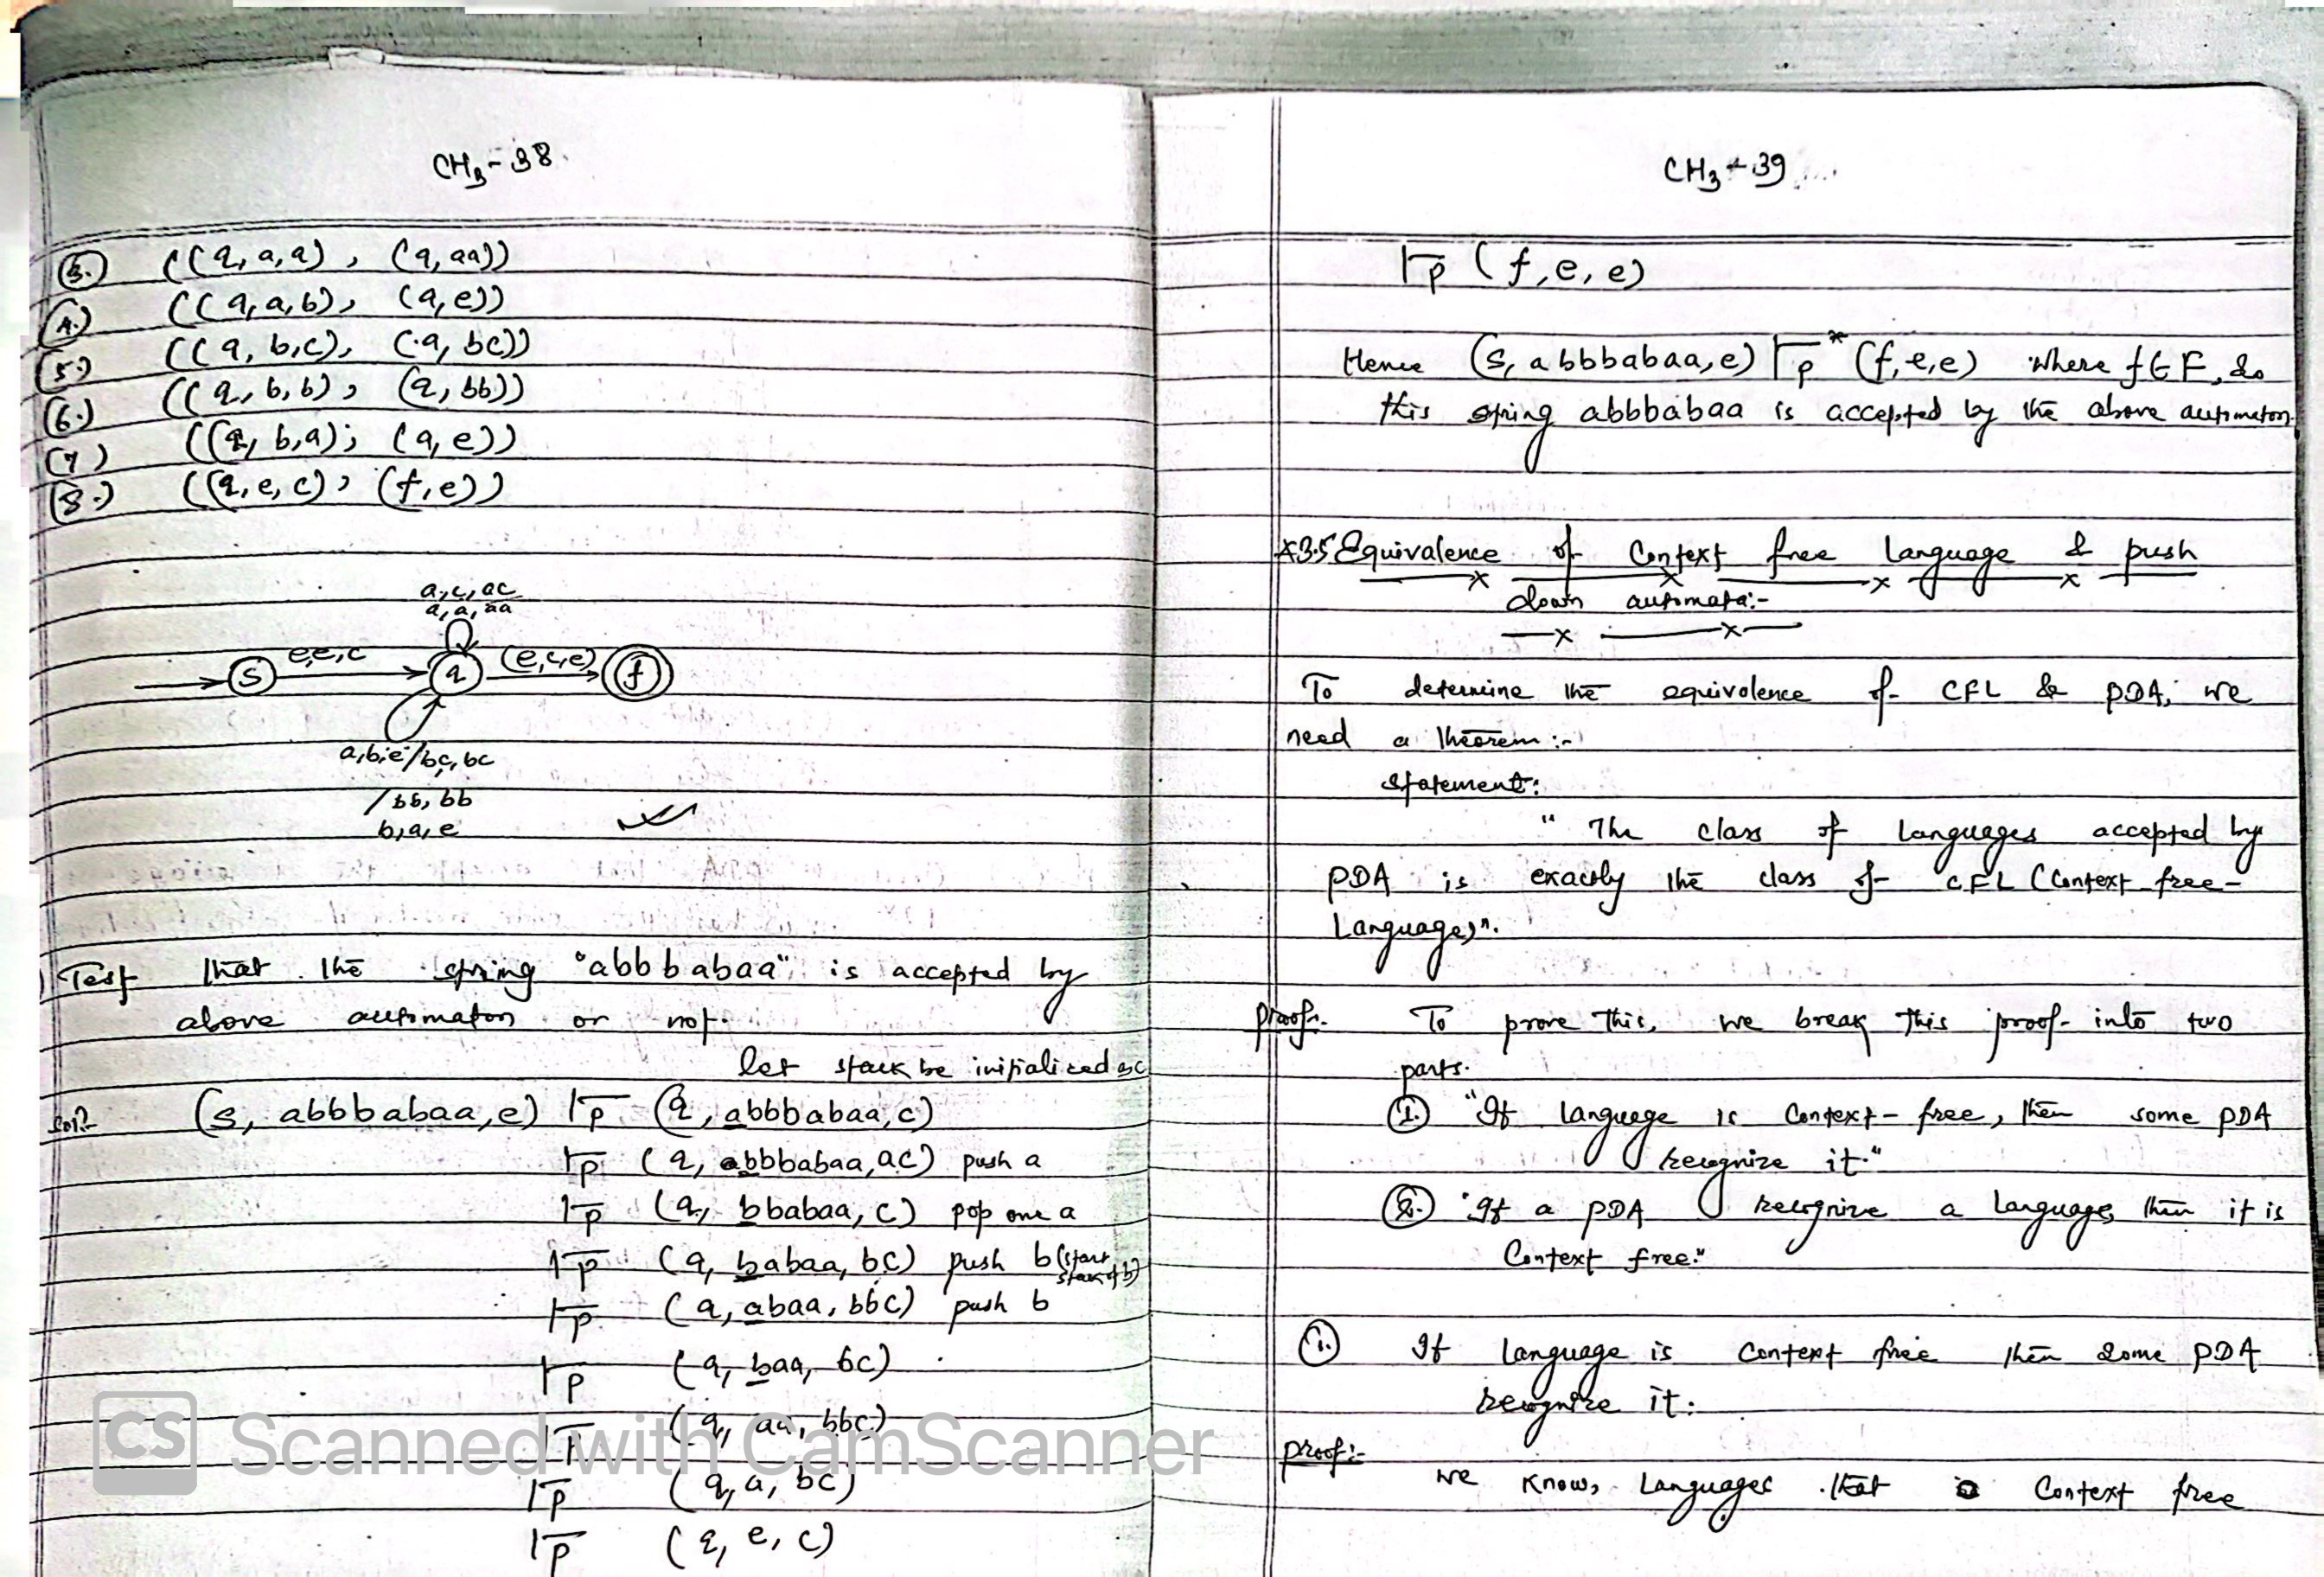 CH3-38
(3.) ((q, a, a) , (q, aa))
(4.) ((q, a, b), (q, e))
(5.) ((q, b, c), (q, bc))
(6.) ((q, b, b), (q, bb))
(7) ((q, b, a); (q, e))
(8.) ((q, e, c), (f, e))
a, c, ac
a, a, aa
e,e,c
(e,c,e)
S
q
f
a,b,e/bc, bc
/bb, bb
b,a,e
Test that the string "abbbabaa" is accepted by
above automaton or not.
let stack be initialized as c
Sol? (s, abbbabaa, e) |-p (q, abbbabaa, c)
|-p (q, abbbabaa, ac) push a
|-p (q, bbabaa, c) pop one a
|-p (q, babaa, bc) push b (start
stack of b)
|-p (q, abaa, bbc) push b
|-p (q, baa, bc)
|-p (q, aa, bbc)
|-p (q, a, bc)
|-p (q, e, c)
CS Scanned with CamScanner
CH3-39
|-p (f, e, e)
Hence (s, abbbabaa, e) |-p* (f, e, e) where f ∈ F, so
this string abbbabaa is accepted by the above automaton.
*3.5 Equivalence of Context free Language & push
down automata:-
To determine the equivalence of CFL & PDA, we
need a theorem:-
statement:
" The class of languages accepted by
PDA is exactly the class of CFL (Context free-
Languages)".
proof:- To prove this, we break this proof into two
parts.
(1.) "If language is Context-free, then some PDA
recognize it."
(2.) "If a PDA recognize a language, then it is
Context free."
(1.) If language is context free then some PDA
recognize it:
proof:- we know, Languages that Context free